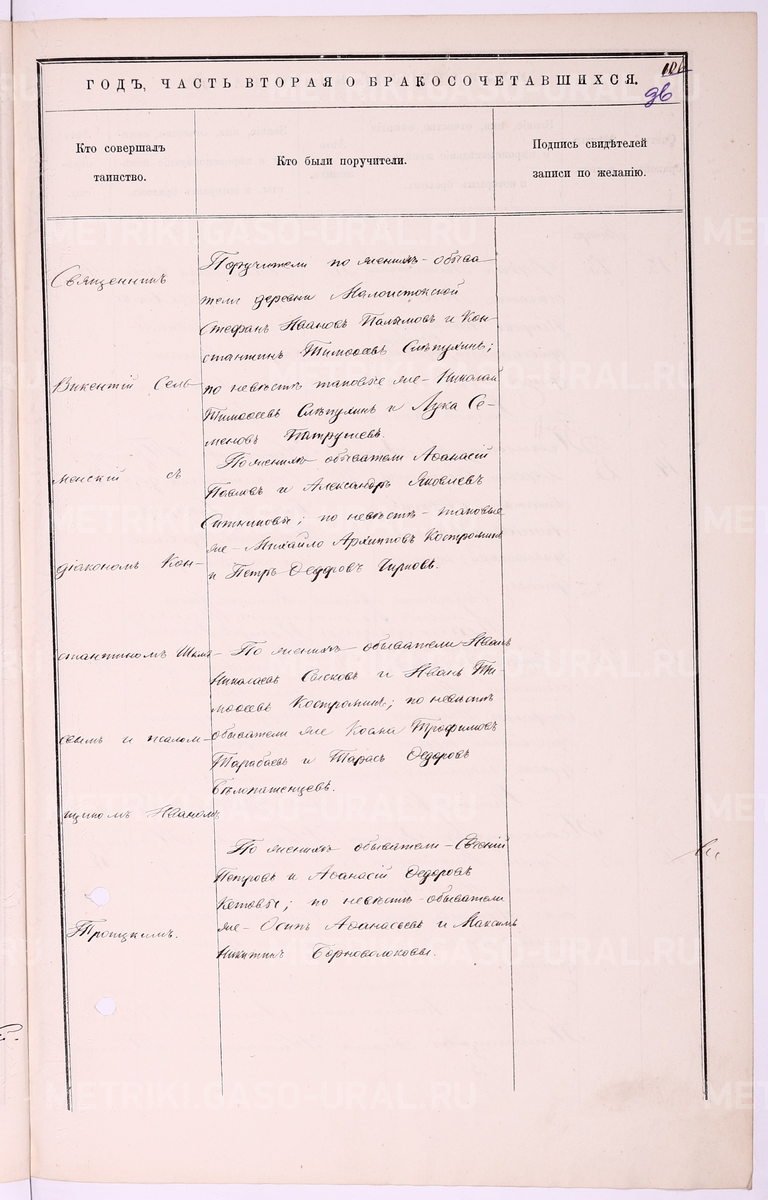 ГОДЪ, ЧАСТЬ ВТОРАЯ О БРАКОСОЧЕТАВШИХСЯ.
Кто совершалъ
таинство.
Кто были поручители.
Подпись свидѣтелей
записи по желанію.
Священникъ
Викентій Сель-
менскій съ
діакономъ Кон-
стантиномъ
и псалом-
щикомъ Иваномъ
Троицкимъ.
Поручители по женихѣ - обыва
тели деревни Малоистокской
Стефанъ Ивановъ Паляновъ и Кон-
стантинъ Тимоѳеевъ Слѣпухинъ;
по невѣстѣ таковые же - Николай
Тимоѳеевъ Слѣпухинъ и Лука Се-
меновъ Патрушевъ.
По женихѣ обыватели Аѳанасій
Павловъ и Александръ Яковлевъ
Ситниковы; по невѣстѣ - таковые
же - Михайло Архиповъ Костроминъ
и Петръ Ѳедоровъ Чирковъ.
По женихѣ - обыватели Иванъ
Николаевъ и Иванъ Ти-
моѳеевъ Костроминъ; по невѣстѣ
обыватели же Косма Трофимовъ
Тарабаевъ и Тарасъ Ѳедоровъ
Бѣлопашенцевъ.
По женихѣ обыватели - Евгеній
Петровъ и Аѳанасій Ѳедоровъ
Кетовы; по невѣстѣ - обыватели
же - Осипъ Аѳанасьевъ и Максимъ
Никитинъ Чорноволоковы.
METRIKI.GASO-URAL.RU